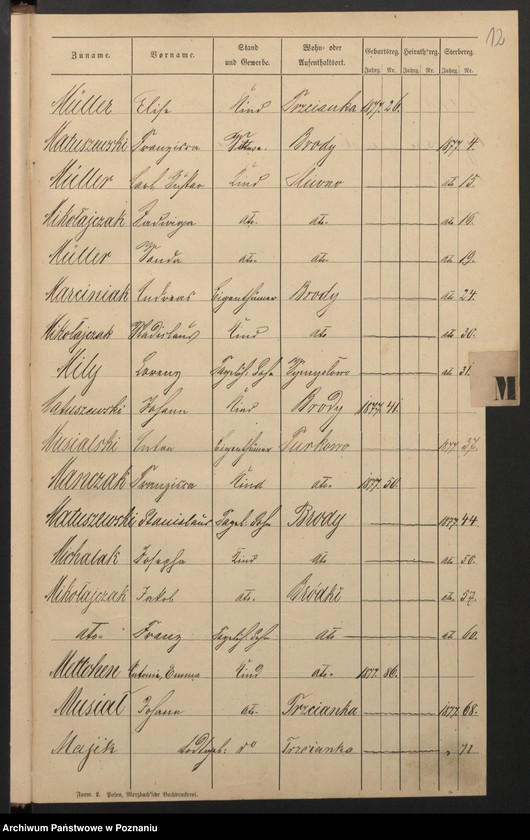 12
Zuname. Vorname. Stand und Gewerbe. Wohn- oder Aufenthaltsort. Geburtsreg. Heirathsreg. Sterbereg.
Jahrg. Nr. Jahrg. Nr. Jahrg. Nr.
Müller Elise Kind Trzcianka 1877. 26.
Matuszewski Franzisca Brody 1877. 4.
Müller Carl Gustav Kind 15.
Mikołajczak Hadwiga dto. dto. dto. 16.
Müller Wanda dto. dto. dto. 19.
Marciniak Andreas Eigenthümer Brody dto. 24.
Mikołajczak Wladislaus Kind dto dto. 30.
Mily Lorenz dto. 31.
Matuszewski Johann Kind Brody 1877. 41.
Musialski Anton Eigenthümer Turkowo 1877 37.
Manczak Franzisca Kind dto. 1877. 50.
Matuszewski Stanislaus Brody 1877. 44.
Michalak Josepha Kind dto dto. 50.
Mikołajczak Jakob dto. Bródki dto. 57.
dto. Franz dto dto. 60.
Antonie, Emma Kind dto. 1877. 86.
Musiał Johann dto. Trzcianka 1877. 68.
Majik do Trzcianka " 72
M
Form. 2. Posen, Merzbach'sche Buchdruckerei.
Archiwum Państwowe w Poznaniu